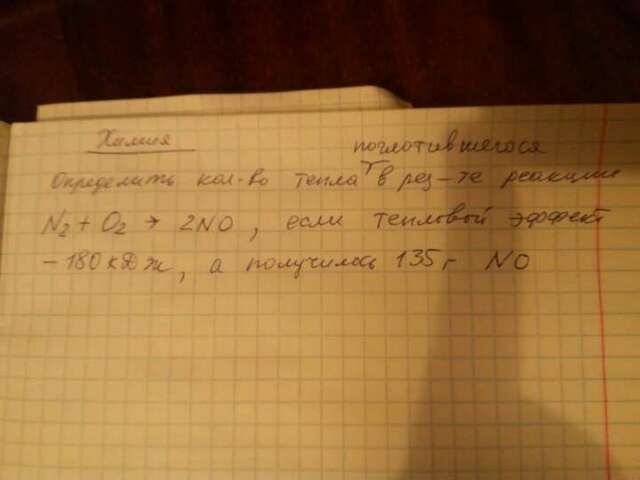 Химия
поглотившегося
Определить кол-во тепла в рез-те реакции
N₂ + O₂ → 2NO, если тепловой эффект
- 180 кДж, а получилось 135 г NO